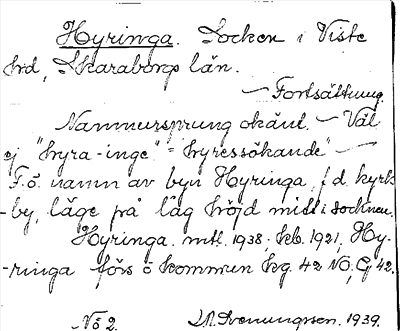 Hyringa. Socken i Viste
hrd, Skaraborgs län.
— Fortsättning.
Namnursprung okänt. — Väl
ej "hyra-inge" = hyressökande" —
F.ö. namn av byn Hyringa, f.d. kyrk-
-by, läge på låg höjd mitt i socknen.
Hyringa. mtl. 1938; keb. 1921, Hy-
-ringa förs o kommun kg. 42 NO; G 42.
Nö 2.
Svenungson. 1939.